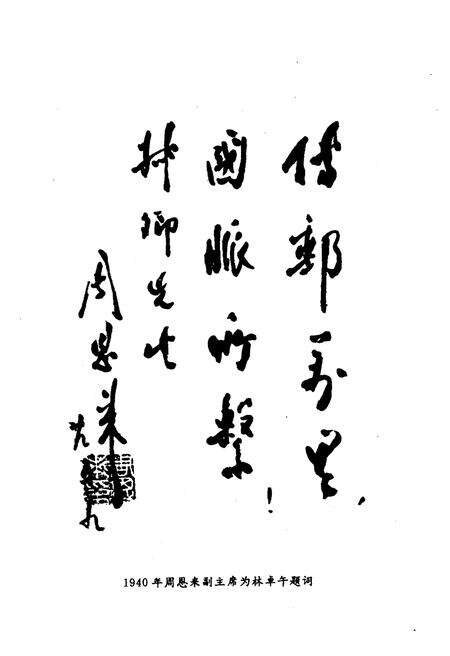 傳郵萬里，
國脈所繫！
卿先生
周恩來
1940年周恩来副主席为林卓午题词